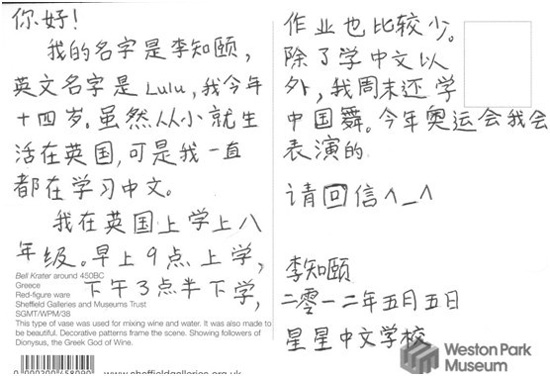 你好！
我的名字是李知颐，
英文名字是Lulu，我今年
十四岁。虽然从小就生
活在英国，可是我一直
都在学习中文。
我在英国上学上八
年级。早上9点上学，
下午3点半下学，
Bell Krater around 450BC
Greece
Red-figure ware
Sheffield Galleries and Museums Trust
SGMT/WPM/38
This type of vase was used for mixing wine and water. It was also made to
be beautiful. Decorative patterns frame the scene. Showing followers of
Dionysus, the Greek God of Wine.
作业也比较少。
除了学中文以
外，我周末还学
中国舞。今年奥运会我会
表演的
请回信^_^
李知颐
二零一二年五月五日
星星中文学校
Weston Park
Museum